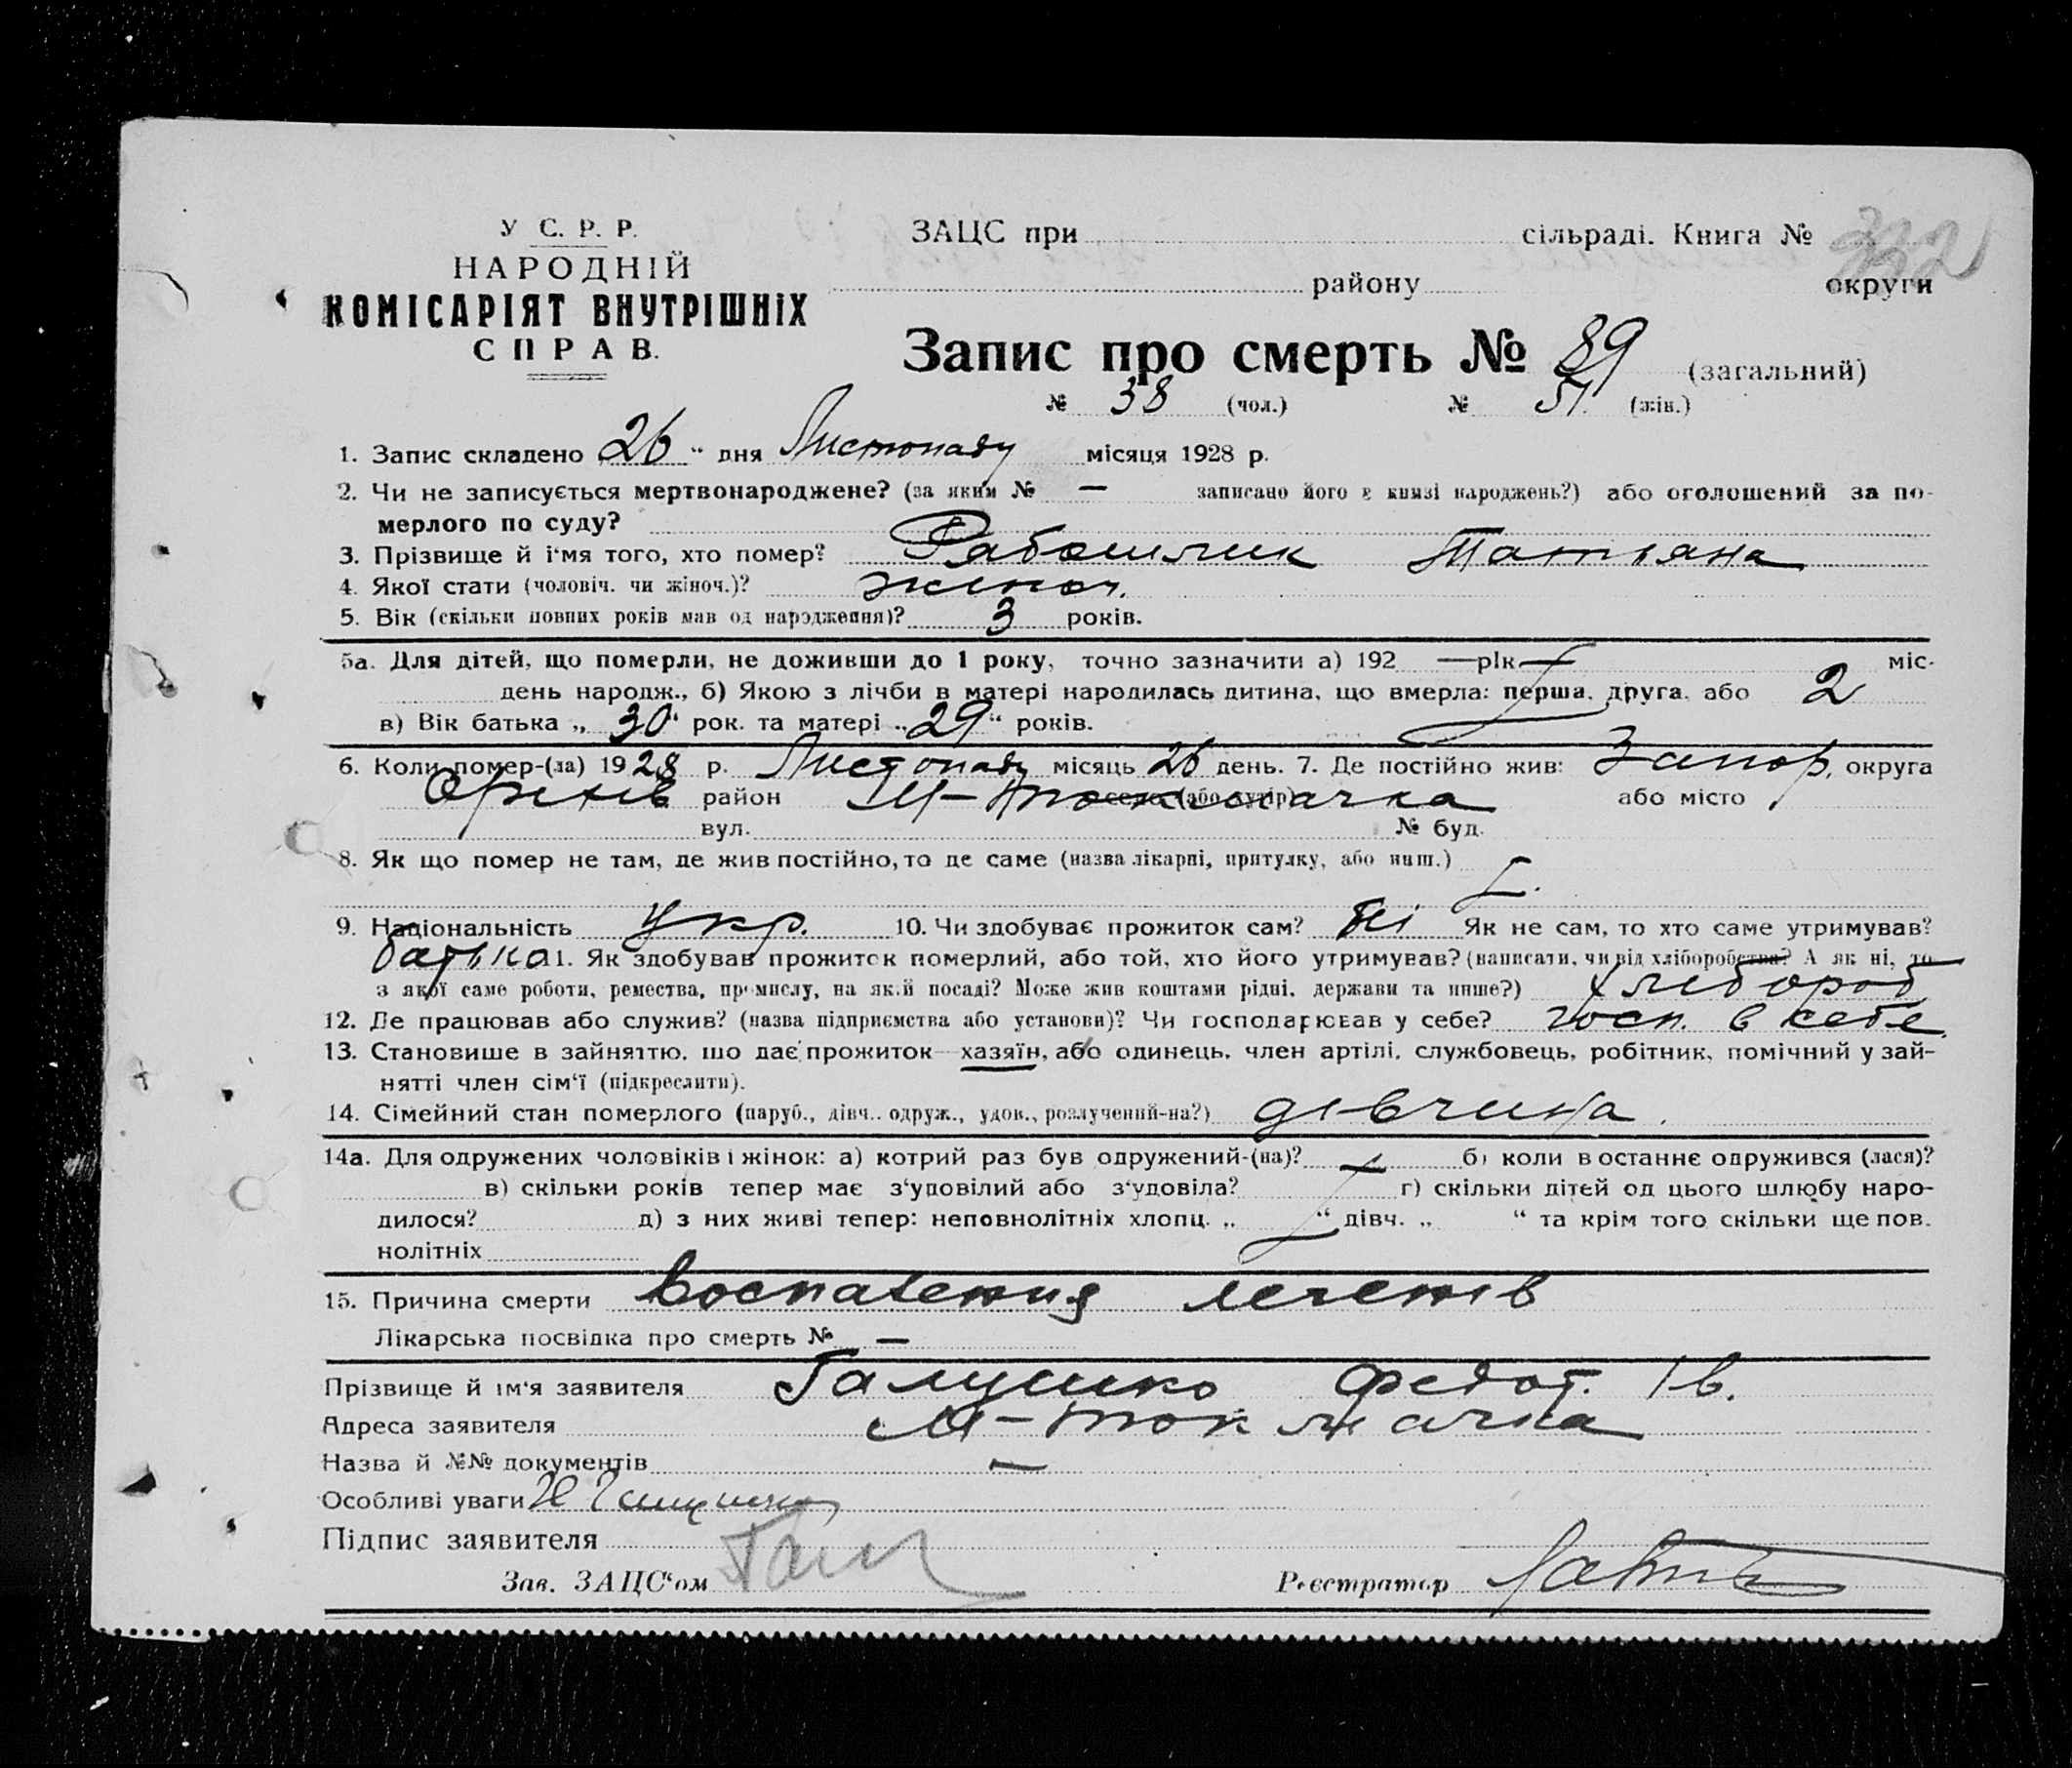 У С. Р. Р.
НАРОДНІЙ
КОМІСАРІЯТ ВНУТРІШНІХ
СПРАВ.
ЗАЦС при сільраді. Книга № 332
району округи
Запис про смерть № 89 (загальний)
№ 38 (чол.) № 51. (жін.)
1. Запис складено 26 “ дня Листопаду місяця 1928 р.
2. Чи не записується мертвонароджене? (за яким № — записано його в книзі народжень?) або оголошений за по-
мерлого по суду?
3. Прізвище й і‘мя того, хто помер? Татьяна
4. Якої стати (чоловіч. чи жіноч.)? жіноч.
5. Вік (скільки повних років мав од народження)? 3 років.
5а. Для дітей, що померли, не доживши до 1 року, точно зазначити а) 192 — рік — міс.
день народж., б) Якою з лічби в матері народилась дитина, що вмерла: перша, друга, або 2
в) Вік батька „ 30 “ рок. та матері „ 29 “ років.
6. Коли помер-(ла) 1928 р. Листопаду місяць 26 день. 7. Де постійно жив: Запор. округа
Оріхів район М-Токмачка село (або хутір) або місто
вул. № буд.
8. Як що помер не там, де жив постійно, то де саме (назва лікарні, притулку, або инш.)
9. Національність укр. 10. Чи здобуває прожиток сам? ні Як не сам, то хто саме утримував?
батько 11. Як здобував прожиток померлий, або той, хто його утримував? (написати, чи від хліборобства? А як ні, то
з якої саме роботи, ремества, промислу, на якій посаді? Може жив коштами рідні, держави та инше?) хлебороб
12. Де працював або служив? (назва підприємства або установи)? Чи господарював у себе? госп. в себе
13. Становище в зайняттю, що дає прожиток—хазяїн, або одинець, член артілі, службовець, робітник, помічний у зай-
нятті член сім‘ї (підкреслити).
14. Сімейний стан померлого (паруб., дівч., одруж., удов., розлучений-на?) дівчина.
14а. Для одружених чоловіків і жінок: а) котрий раз був одружений-(на)? — б) коли в останнє одружився (лася)?
в) скільки років тепер має з‘уповілий або з‘удовіла? г) скільки дітей од цього шлюбу наро-
дилося? д) з них живі тепер: неповнолітніх хлопц. „ “ дівч. „ “ та крім того скільки ще пов.
нолітніх
15. Причина смерти воспаления легенів
Лікарська посвідка про смерть № —
Прізвище й ім‘я заявителя Галушко Федот. Ів.
Адреса заявителя М-Токмачка
Назва й №№ документів —
Особливі уваги
Підпис заявителя
Зав. ЗАЦС“ом Гал
Реєстратор